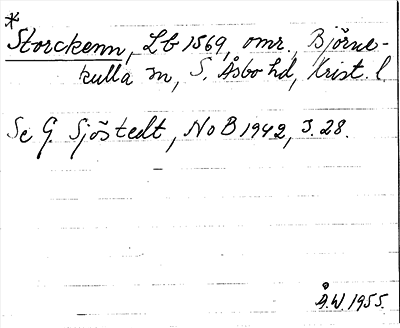 *
Storckenn, Lb 1569, omr., Björne-
kulla sn, S. Åsbo hd, Krist. l.
Se G. Sjöstedt, NoB 1942, s. 28.
Å.W 1955.